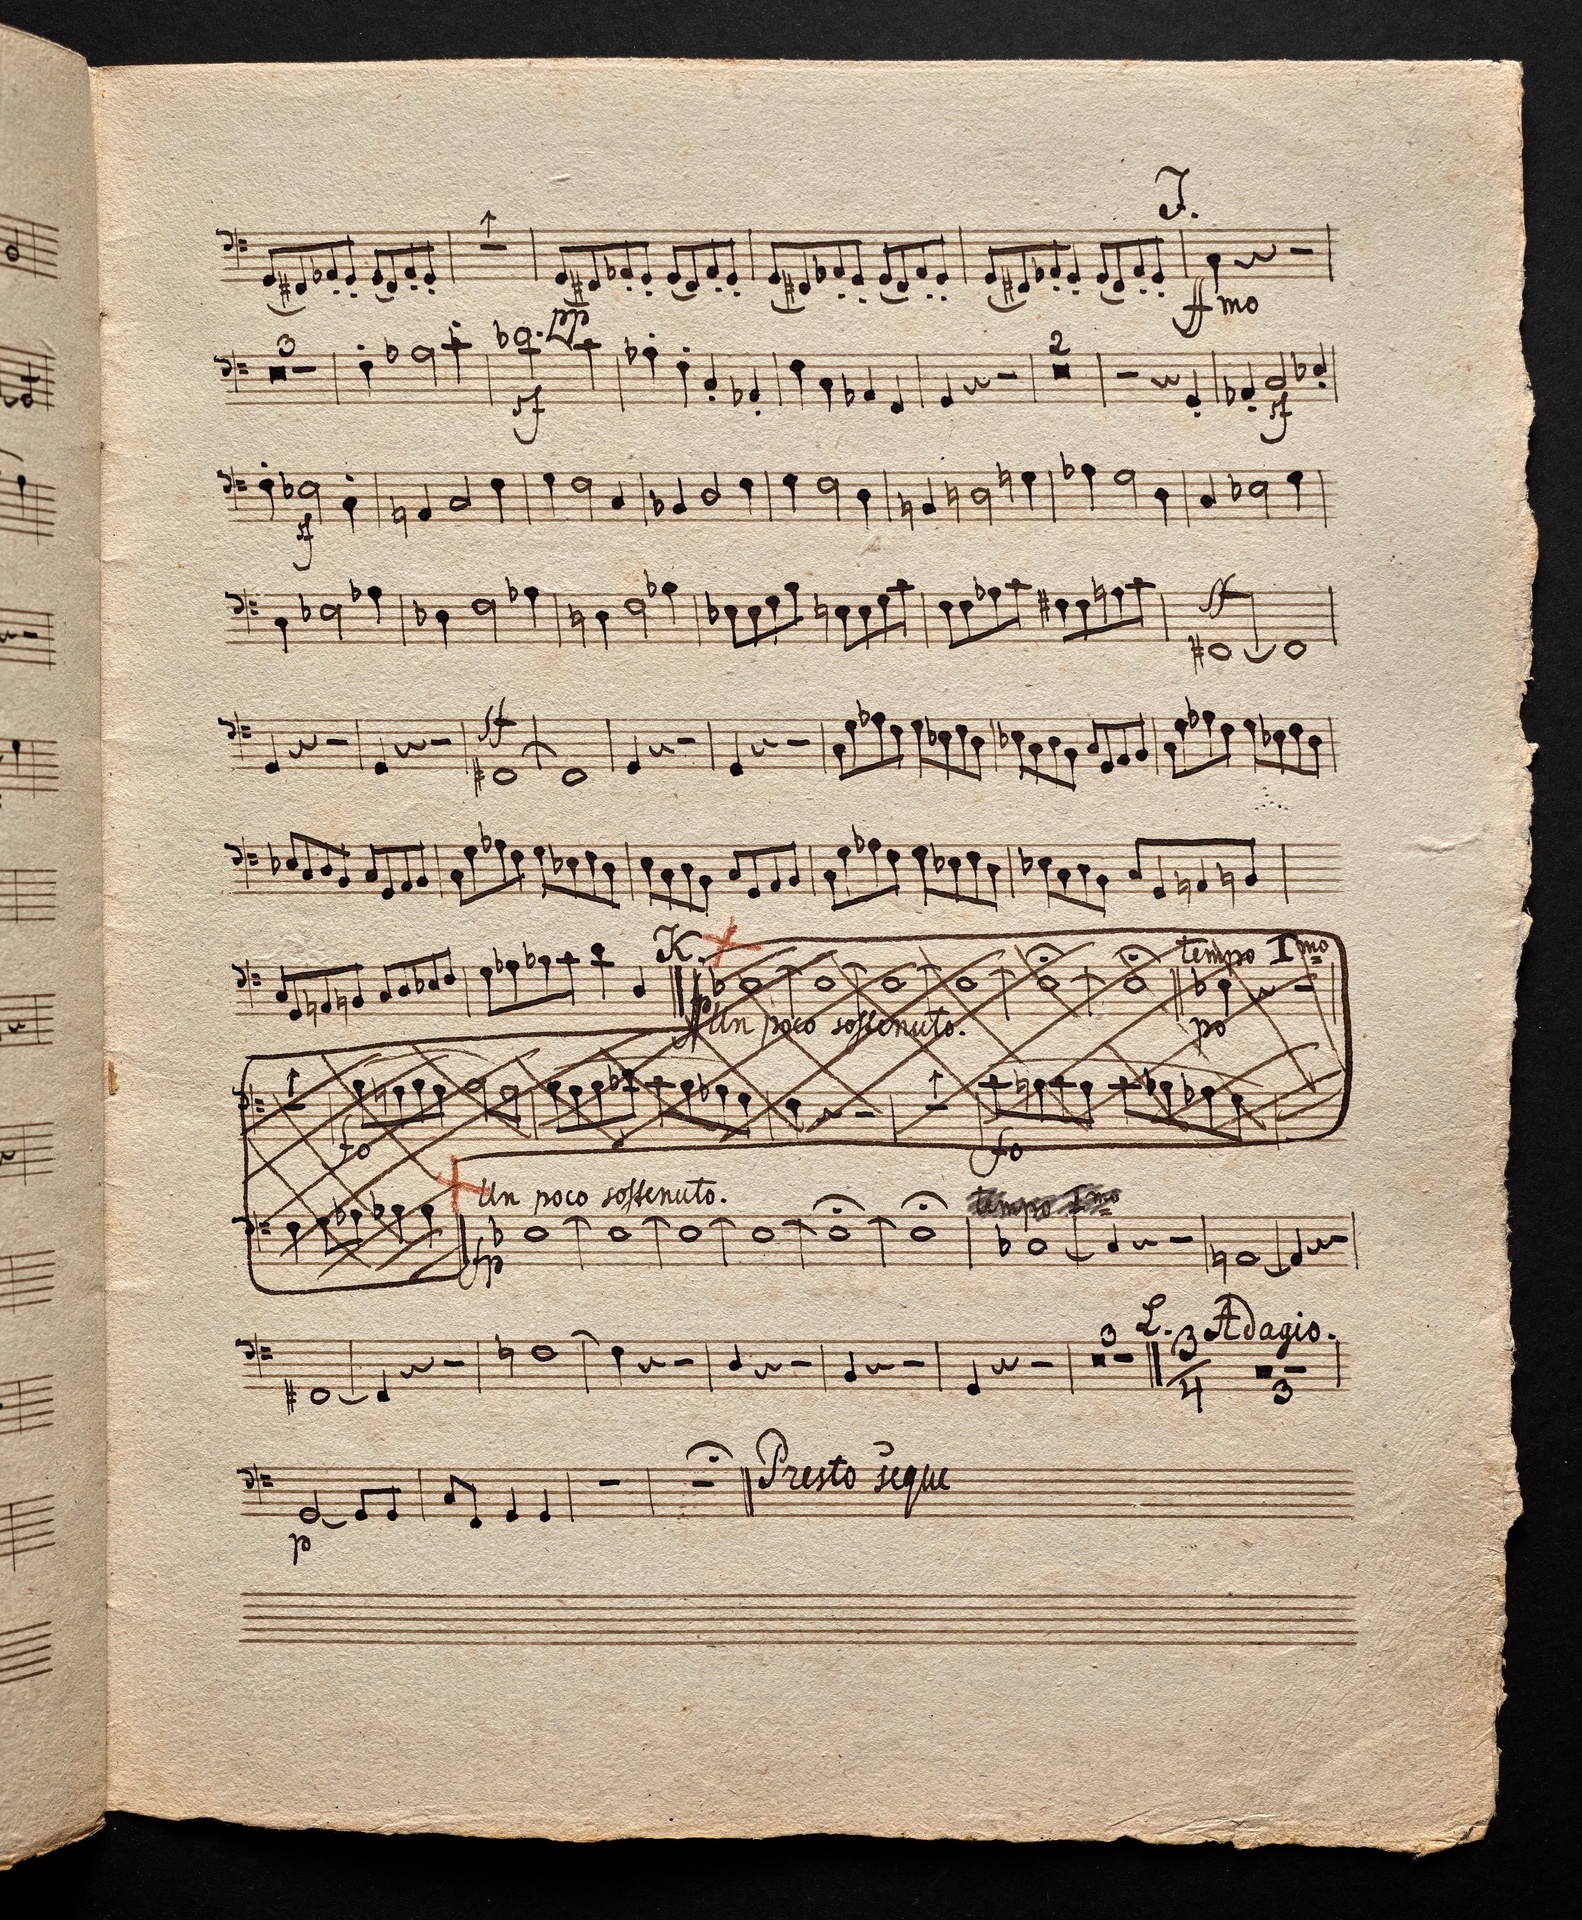 J.
ffmo
3
pp
sf
2
sf
sf
sf
sf
K.
tempo Imo
fp
Un poco sostenuto.
po
fo
fo
Un poco sostenuto.
tempo Imo
fp
L. Adagio.
3
3
4
3
Presto segue
p